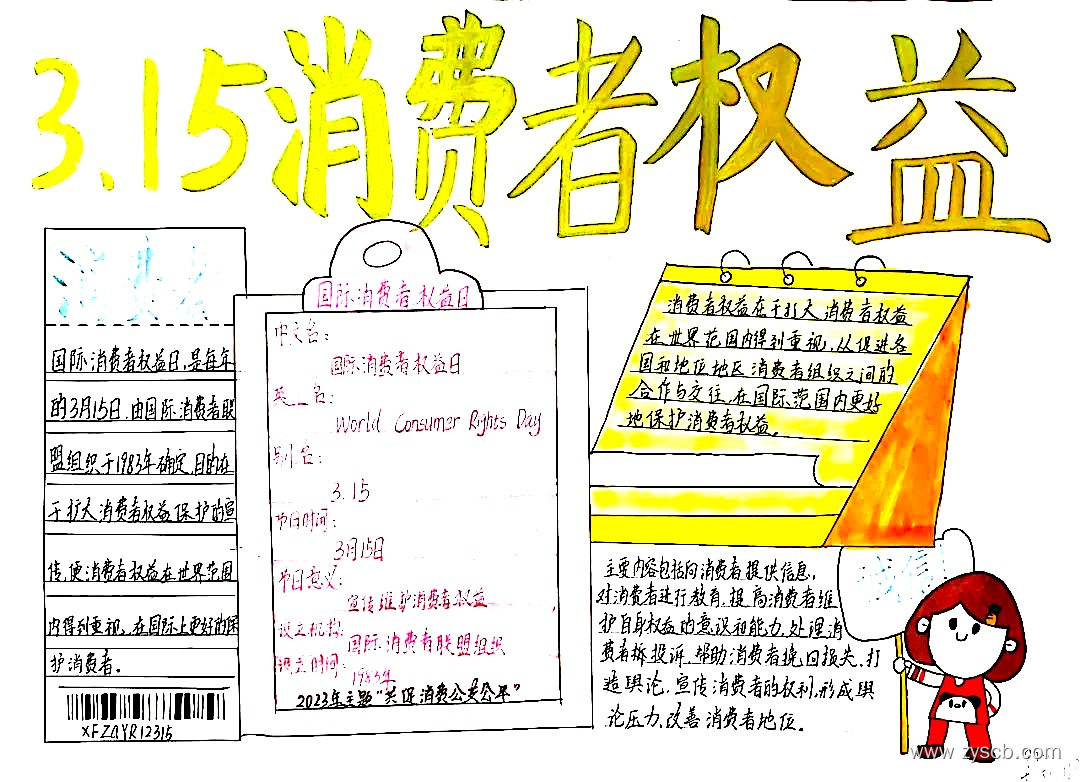 3.15消费者权益
消费者
国际消费者权益日,是每年
的3月15日,由国际消费者联
盟组织于1983年确定,目的在
于扩大消费者权益保护的宣
传,使消费者权益在世界范围
内得到重视,在国际上更好的保
护消费者。
XFZQYR12315
国际消费者权益日
中文名:
国际消费者权益日
英__名:
World Consumer Rights Day
别名:
3.15
节日时间:
3月15日
节日意义:
宣传维护消费者权益
设立机构:
国际消费者联盟组织
设立时间:
1983年
2023年主题"共促消费公平"
消费者权益在于扩大消费者权益
在世界范围内得到重视,从促进各
国和地位地区消费者组织之间的
合作与交往,在国际范围内更好
地保护消费者权益。
主要内容包括向消费者提供信息,
对消费者进行教育,提高消费者维
护自身权益的意识和能力,处理消
费者拆投诉,帮助消费者挽回损失,打
造舆论,宣传消费者的权利,形成舆
论压力,改善消费者地位。
诚信!
www.zyscb.com